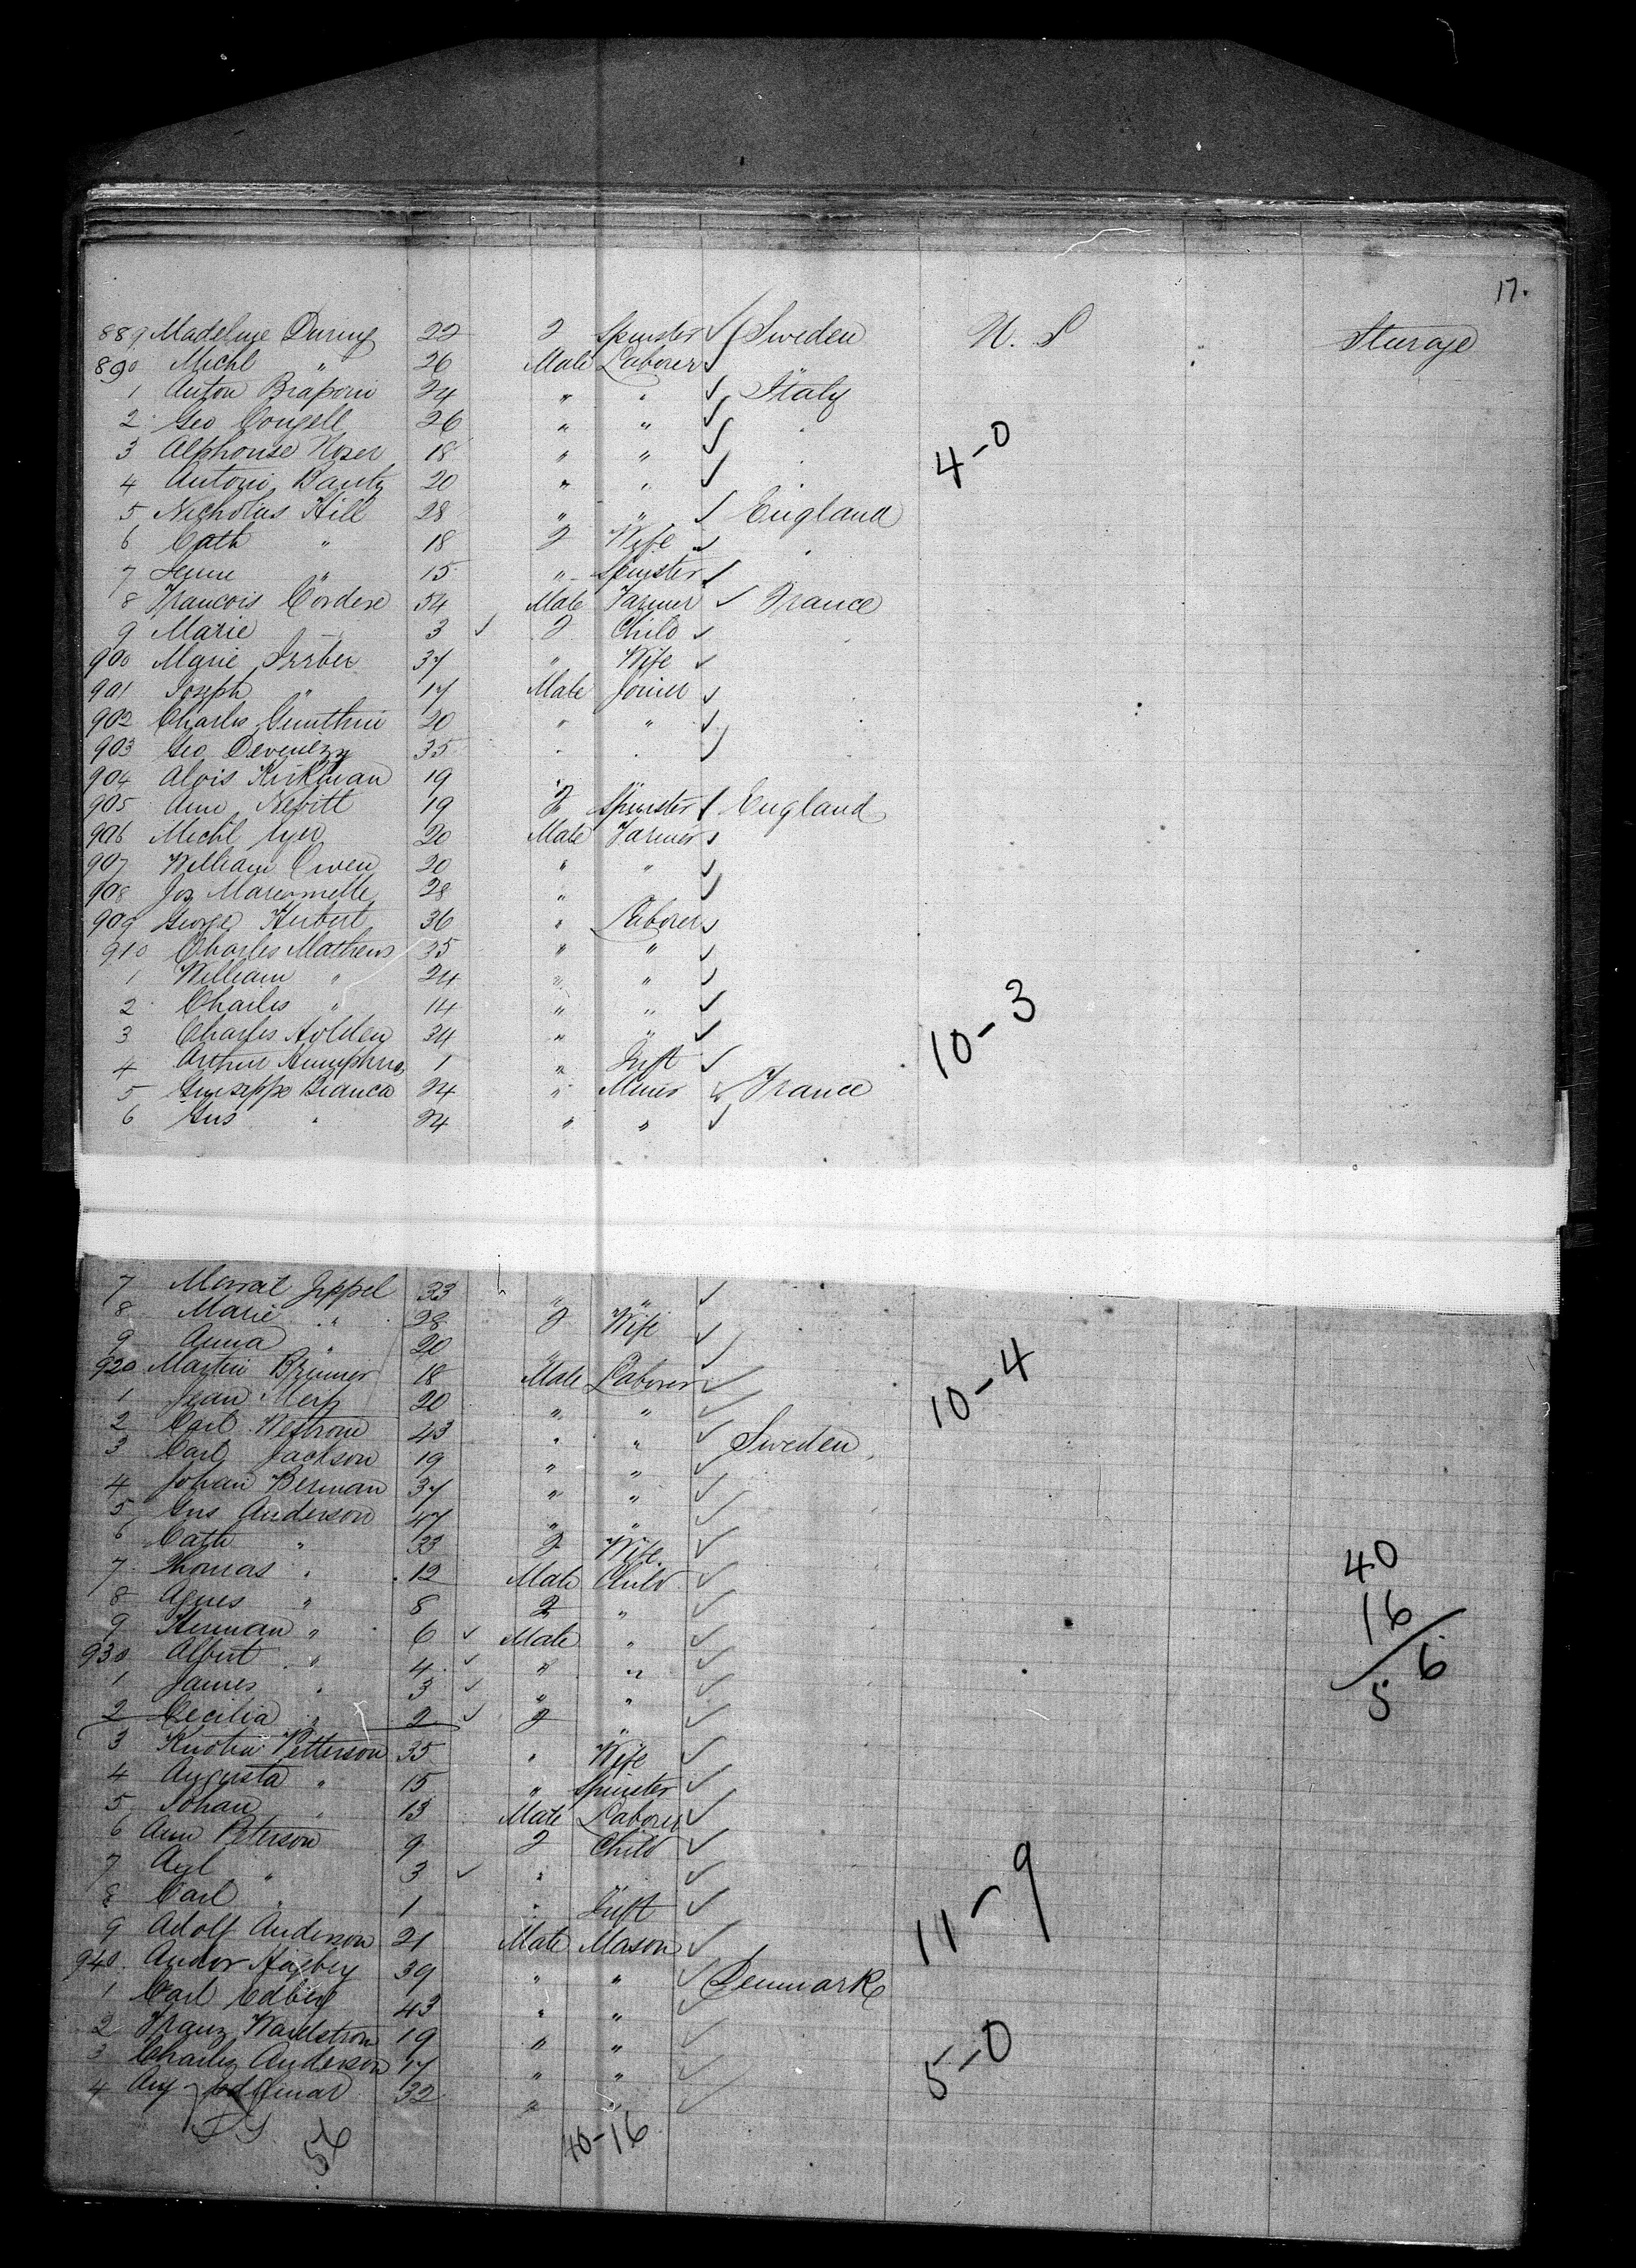 17.
889 Madeline During 22 F Spinster ✓ Sweden U. S Sterage
890 Michl " 26 Male Laborer ✓
1 Anton Braponi 24 " " ✓ Italy
2 Geo Congell 26 " " ✓
3 Alphonse Noser 18 " " ✓
4 Antoni Bautz 20 " " ✓
4-0
5 Nicholas Hill 28 " " ✓ England
6 Cath " 18 F Wife ✓
7 " 15 " Spinster ✓
8 Francois Cordere 54 Male Farmer ✓ France
9 Marie 3 ✓ F Child ✓
900 Marie 37 " Wife ✓
901 Joseph " 17 Male Joiner ✓
902 Charles 20 " " ✓
903 Geo 35 ✓
904 Alois Kirkman 19
905 Ann Nevitt 19 F Spinster ✓ England
906 Michl 20 Male Farmer ✓
907 William Owen 20 " " ✓
908 Jos 28 " ✓
909 George Herbert 36 " Laborer ✓
910 Charles Mathews 35 " " ✓
1 William " 24 " " ✓
2 Charles " 14 " " ✓
3 Charles Holden 34 " " ✓
10-3
4 Arthur 1 " Inft ✓
5 Guiseppe Bianca 24 " Miner ✓ France
6 Gus " 24 " " ✓
7 33 " " ✓
8 Marie " 28 F Wife ✓
9 Anna " 20 " ✓
920 Martin 18 Male Laborer ✓
10-4
1 Jean 20 " " ✓
2 Carl 43 " " ✓ Sweden
3 Carl Jackson 19 " " ✓
4 Johan Berman 37 " " ✓
5 Gus Anderson 47 " " ✓
6 Cath " 33 F Wife ✓
7 Thomas " 12 Male Child ✓
8 Agnes " 8 F " ✓
9 Herman " 6 ✓ Male " ✓
930 Albert " 4 ✓ " " ✓
1 James " 3 ✓ " " ✓
2 Cecilia " 2 ✓ F " ✓
40
16
5/6
3 Petterson 35 " Wife ✓
4 Augusta " 15 " Spinster ✓
5 Johan " 13 Male Laborer ✓
6 Ann Peterson 9 F Child ✓
7 " 3 ✓ " ✓
8 Carl " 1 " Inft ✓
11-9
9 Adolf Anderson 21 Male Mason ✓
940 39 " " ✓ Denmark
1 Carl Edberg 43 " " ✓
2 Franz 19 " " ✓
3 Charles Anderson 17 " " ✓
5-0
4 32 " " ✓
56 40-16